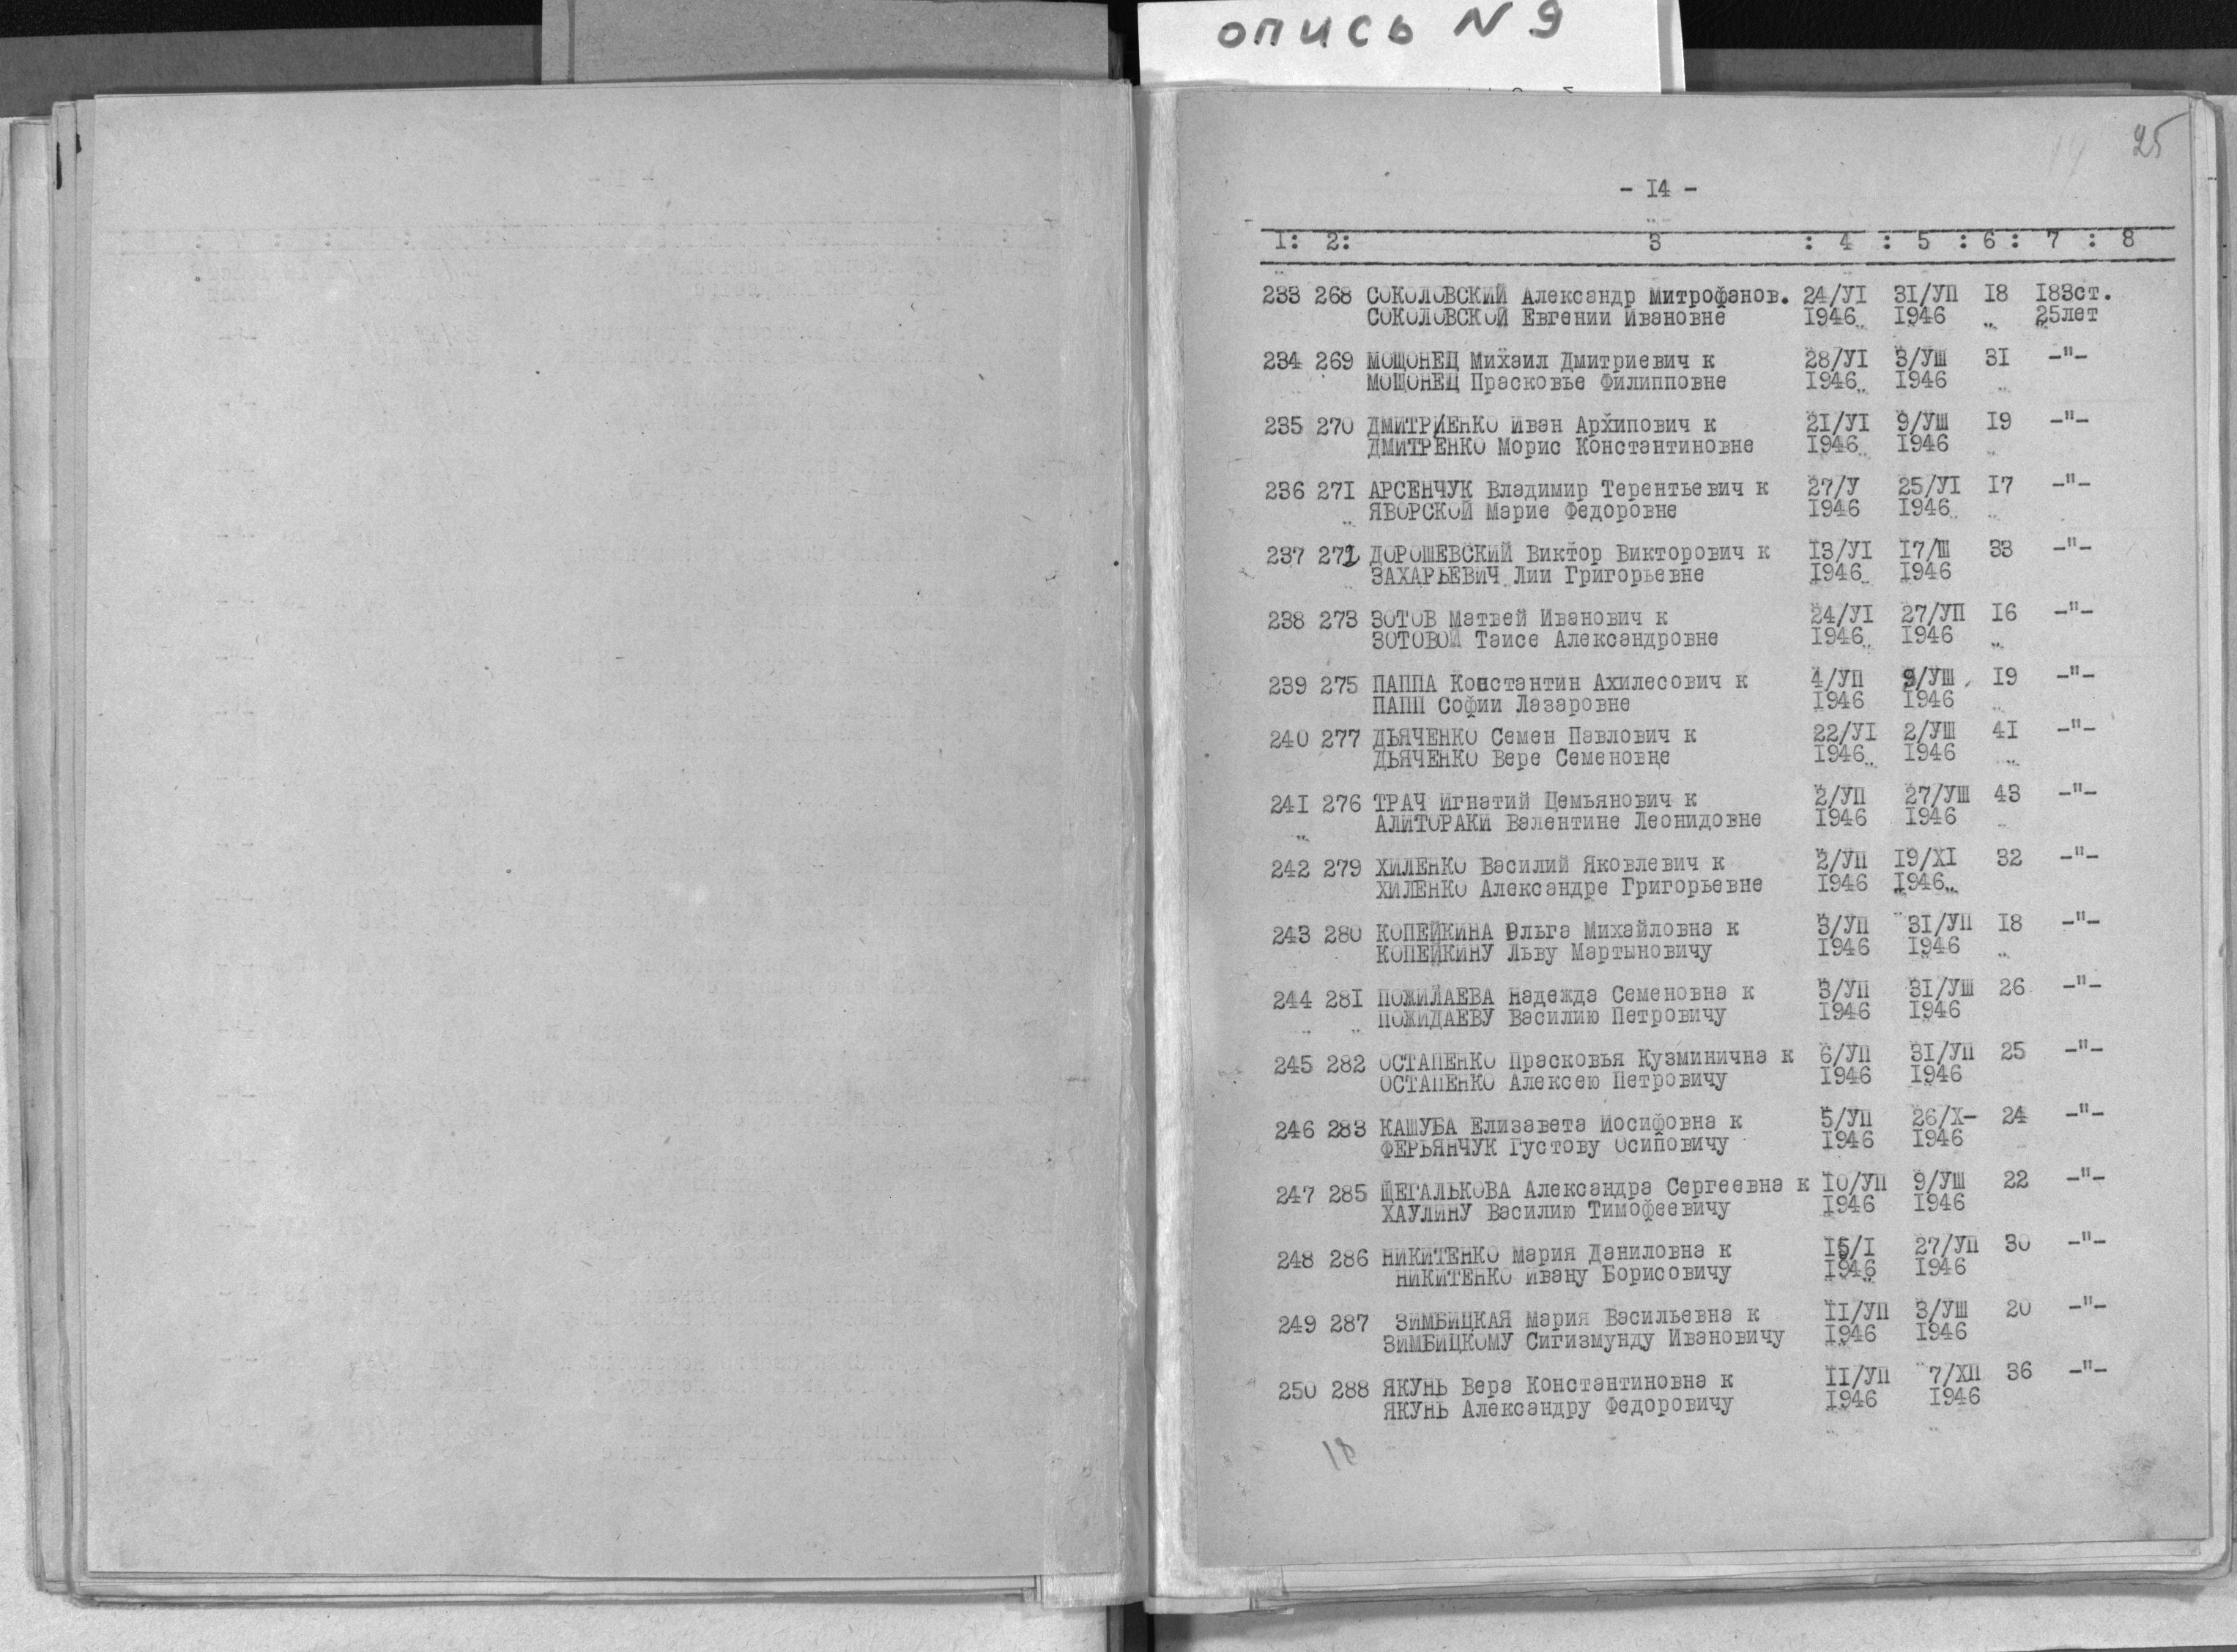 опись N 9
25
14
- I4 -
1: 2: 3 : 4 : 5 : 6 : 7 : 8
233 268 СОКОЛОВСКИЙ Александр Митрофанов. 24/УI 3I/УП I8 I83ст.
СОКОЛОВСКОЙ Евгении Ивановне I946 I946 " 25лет
234 269 МОЩОНЕЦ Михаил Дмитриевич к 28/УI 3/УШ 3I -"-
МОЩОНЕЦ Прасковье Филипповне I946 I946
235 270 ДМИТРИЕНКО Иван Архипович к 2I/УI 9/УШ I9 -"-
ДМИТРЕНКО Морис Константиновне I946 I946
236 27I АРСЕНЧУК Владимир Терентьевич к 27/У 25/УI I7 -"-
ЯВОРСКОЙ Марие Федоровне I946 I946
237 272 ДОРОШЕВСКИЙ Виктор Викторович к I3/УI I7/Ш 33 -"-
ЗАХАРЬЕВИЧ Лии Григорьевне I946 I946
238 273 ЗОТОВ Матвей Иванович к 24/УI 27/УП I6 -"-
ЗОТОВОЙ Таисе Александровне I946 I946 "
239 275 ПАППА Константин Ахилесович к 4/УП 9/УШ I9 -"-
ПАПП Софии Лазаровне I946 I946
240 277 ДЬЯЧЕНКО Семен Павлович к 22/УI 2/УШ 4I -"-
ДЬЯЧЕНКО Вере Семеновне I946 I946
24I 276 ТРАЧ Игнатий Цемьянович к 2/УП 27/УШ 43 -"-
АЛИТОРАКИ Валентине Леонидовне I946 I946
242 279 ХИЛЕНКО Василий Яковлевич к 2/УП I9/XI 32 -"-
ХИЛЕНКО Александре Григорьевне I946 I946
243 280 КОПЕЙКИНА Ольга Михайловна к 3/УП 3I/УП I8 -"-
КОПЕЙКИНУ Льву Мартыновичу I946 I946
244 28I ПОЖИЛАЕВА Надежда Семеновна к 3/УП 3I/УШ 26 -"-
ПОЖИДАЕВУ Василию Петровичу I946 I946
245 282 ОСТАПЕНКО Прасковья Кузминична к 6/УП 3I/УП 25 -"-
ОСТАПЕНКО Алексею Петровичу I946 I946
246 283 КАШУБА Елизавета Иосифовна к 5/УП 26/X- 24 -"-
ФЕРЬЯНЧУК Густову Осиповичу I946 I946
247 285 ЩЕГАЛЬКОВА Александра Сергеевна к I0/УП 9/УШ 22 -"-
ХАУЛИНУ Василию Тимофеевичу I946 I946
248 286 НИКИТЕНКО Мария Даниловна к I5/I 27/УП 30 -"-
НИКИТЕНКО Ивану Борисовичу I946 I946
249 287 ЗИМБИЦКАЯ Мария Васильевна к II/УП 3/УШ 20 -"-
ЗИМБИЦКОМУ Сигизмунду Ивановичу I946 I946
250 288 ЯКУНЬ Вера Константиновна к II/УП 7/XП 36 -"-
ЯКУНЬ Александру Федоровичу I946 I946
18